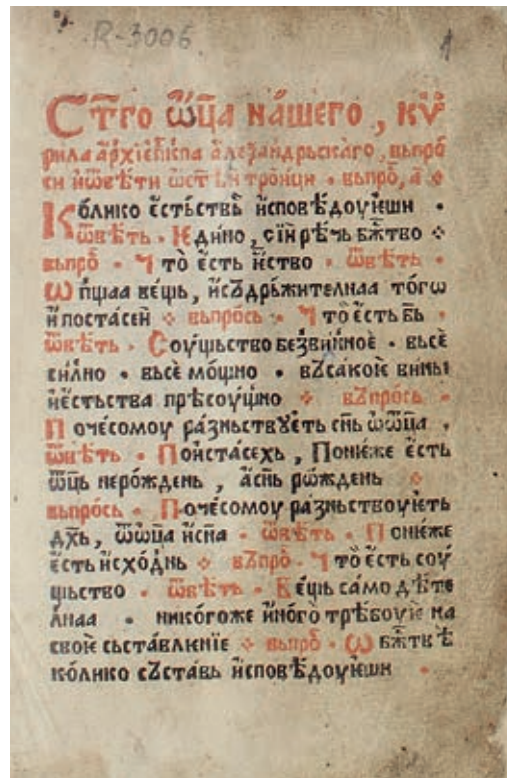 R-3006
1
Ст҃го ѿц҃а на́шего , кѵ
рила а҆рхїе҆пⷭ҇кпа а҆леѯандрьскаго, вьпро́
си и҆ѿвѣти ѡ҆ст҃ѣи тро́ици • вьпро́, а҃
Колико є҆стьствь и҆сповѣдоуѥши •
ѿвѣть • Ѥдино , сїи рѣчь бж҃тво ⁘
вьпро́ • Что̀ є҆сть ѥ҆ство • ѿвѣть •
Ѡпщаа ве́щь , и҆съдрьжителнаа то́гѡ
ѵ҆постасеи ⁘ вьпро́сь • Что̀ є҆сть б҃ь
ѿвѣть • Соущьство безви́нноѐ • вьсѐ
си́лно • вьсѐ мо́щно • въсакоѥ вины
ѥ҆стьства прѣсоущно ⁘ въпро́сь •
Почесомоу ра́зньствꙋѥть сн҃ь ѡ҆ѿц҃а .
ѿвѣть • По ѵ҆стасехь , Поне́же є҆сть
ѿц҃ь неро́ждень , а҆сн҃ь рѡ́ждень ⁘
вьпро́сь • Почесомоу ра́зньствоуѥть
дх҃ь, ѿѡ҆ц҃а и҆сн҃а • ѿвѣть • Поне́же
є҆сть и҆схо́днь ⁘ въпро́ • Что̀ є҆сть соу
щьство • ѿвѣть • Ве́щь са́мо дѣте
лнаа • нико́гоже и҆но́го трѣбоуѥ на
своѥ сьста́вленїе ⁘ вьпро́ • Ѡ бж҃твѣ
ко́лико съста́вь и҆сповѣдоуѥши •